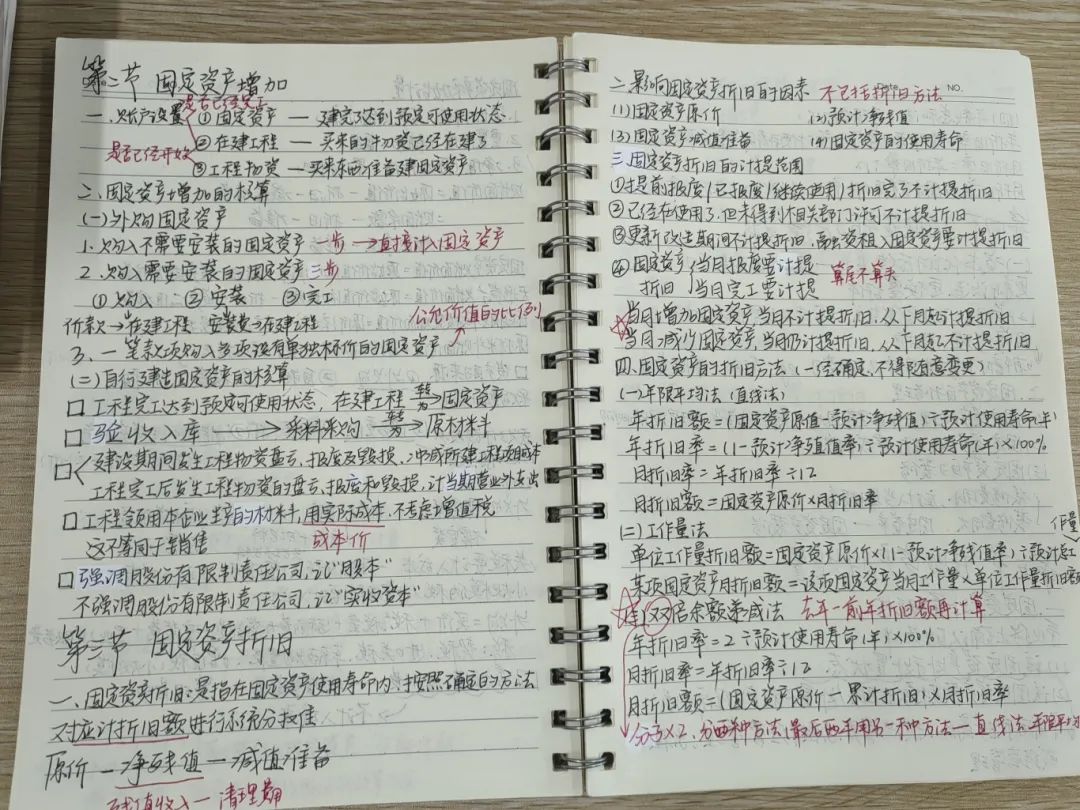 第二节 固定资产增加
是否已经完工
一、账户设置 ①固定资产 — 建完了达到预定可使用状态
②在建工程 — 买来的物资已经在建了
是否已经开始
③工程物资 — 买来东西准备建固定资产
二、固定资产增加的核算
(一)外购固定资产
1. 购入不需要安装的固定资产 一步 → 直接计入固定资产
2. 购入需要安装的固定资产 三步
①购入 ②安装 ③完工
价款→在建工程 安装费→在建工程
公允价值的比例
3. 一笔款项购入多项没有单独标价的固定资产
(二)自行建造固定资产的核算
□ 工程完工达到预定可使用状态, 在建工程 转为→ 固定资产
□ 验收入库 → 采料采购 转为→ 原材料
□ 建设期间发生工程物资盘亏, 报废及毁损, 冲减所建工程项目成本
工程完工后发生工程物资的盘亏, 报废和毁损, 计当期营业外支出
□ 工程领用本企业生产的材料, 用实际成本, 不考虑增值税
这不等同于销售 成本价
□ 强调股份有限制责任公司, 记“股本”
不强调股份有限制责任公司, 记“实收资本”
第三节 固定资产折旧
一、固定资产折旧:是指在固定资产使用寿命内, 按照确定的方法
对应计折旧额进行系统分摊
原价 — 净残值 — 减值准备
残值收入 — 清理费用
二、影响固定资产折旧的因素 不包括折旧方法 NO.
(1)固定资产原价 (2)预计净残值
(3)固定资产减值准备 (4)固定资产的使用寿命
三、固定资产折旧的计提范围
①提前报废/已报废/继续使用/折旧完了不计提折旧
②已经在使用了, 但未得到相关部门许可不计提折旧
③更新改造期间不计提折旧, 融资租入固定资产要计提折旧
④固定资产 当月报废要计提
折旧 当月完工要计提 算尾不算头
当月增加固定资产, 当月不计提折旧, 从下月起计提折旧
当月减少固定资产, 当月仍计提折旧, 从下月起不计提折旧
四、固定资产的折旧方法 (一经确定, 不得随意变更)
(一)年限平均法 (直线法)
年折旧额=(固定资产原值-预计净残值)÷预计使用寿命(年)
年折旧率=(1-预计净残值率)÷预计使用寿命(年)×100%
月折旧率=年折旧率÷12
月折旧额=固定资产原价×月折旧率
(二)工作量法
单位工作量折旧额=固定资产原价×(1-预计净残值率)÷预计总工作量
某项固定资产月折旧额=该项固定资产当月工作量×单位工作量折旧额
双倍余额递减法 去年一前年折旧额再计算
年折旧率=2÷预计使用寿命(年)×100%
月折旧率=年折旧率÷12
月折旧额=(固定资产原价-累计折旧)×月折旧率
×2, 分两种方法, 最后两年用另一种方法—直线法